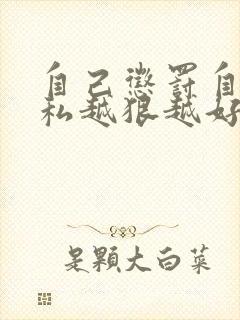 自己懲罰自
私越狠越好
是顆大白菜